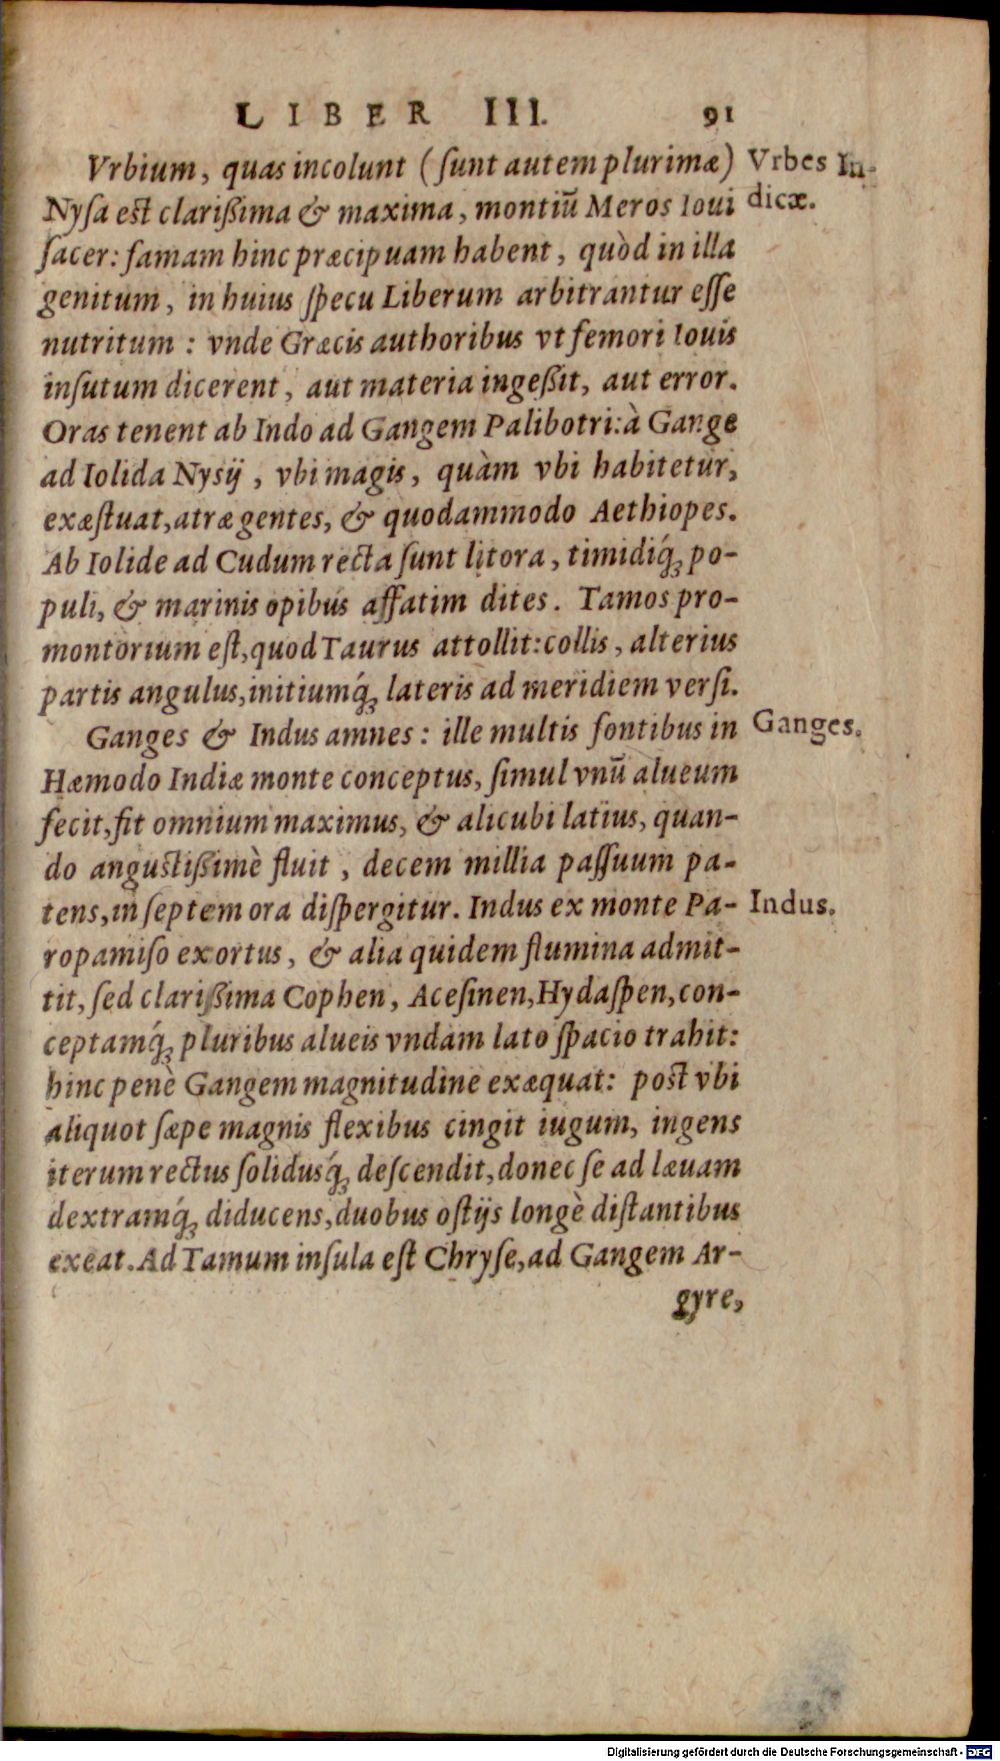 LIBER III. 91
Vrbium, quas incolunt (ſunt autem plurimæ) Vrbes In-
Nyſa eſt clarißima & maxima, montiũ Meros Ioui dicæ.
ſacer: famam hinc præcipuam habent, quòd in illa
genitum, in huius ſpecu Liberum arbitrantur eſſe
nutritum : vnde Græcis authoribus vt femori Iouis
inſutum dicerent, aut materia ingeßit, aut error.
Oras tenent ab Indo ad Gangem Palibotri: à Gange
ad Iolida Nysij, vbi magis, quàm vbi habitetur,
exæſtuat, atræ gentes, & quodammodo Aethiopes.
Ab Iolide ad Cudum recta ſunt litora, timidiq́; po-
puli, & marinis opibus affatim dites. Tamos pro-
montorium eſt, quod Taurus attollit: collis, alterius
partis angulus, initiumq́; lateris ad meridiem verſi.
Ganges & Indus amnes : ille multis fontibus in Ganges.
Hæmodo Indiæ monte conceptus, ſimul vnũ alueum
fecit, fit omnium maximus, & alicubi latius, quan-
do anguſtißimè fluit, decem millia paſſuum pa-
tens, in ſeptem ora diſpergitur. Indus ex monte Pa- Indus.
ropamiſo exortus, & alia quidem flumina admit-
tit, ſed clarißima Cophen, Aceſinen, Hydaſpen, con-
ceptamq́; pluribus alueis vndam lato ſpacio trahit:
hinc penè Gangem magnitudine exæquat: poſt vbi
aliquot ſæpe magnis flexibus cingit iugum, ingens
iterum rectus ſolidusq́; deſcendit, donec ſe ad læuam
dextramq́; diducens, duobus oſtijs longè diſtantibus
exeat. Ad Tamum inſula eſt Chryſe, ad Gangem Ar-
gyre,
Digitalisierung gefördert durch die Deutsche Forschungsgemeinschaft - DFG